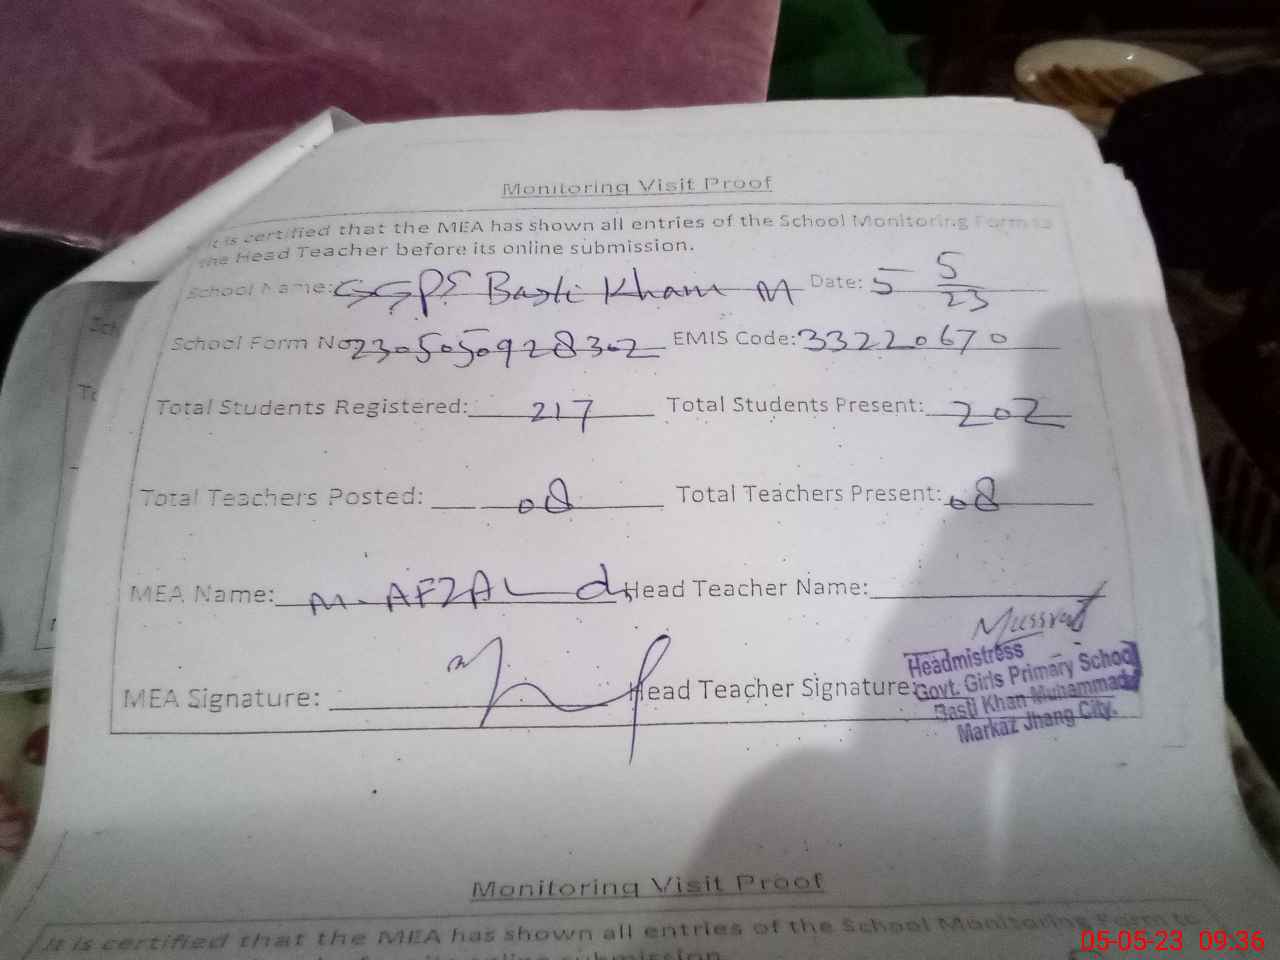 Monitoring Visit Proof
It is certified that the MEA has shown all entries of the School Monitoring Form to
the Head Teacher before its online submission.
School Name: GGPS Basti Khan M Date: 5-5/23
School Form No 2305050928302 EMIS Code: 33220670
Total Students Registered: 217 Total Students Present: 202
Total Teachers Posted: 08 Total Teachers Present: 08
MEA Name: M. AFZAL Head Teacher Name:
Mussrat
MEA Signature: Head Teacher Signature:
Headmistress
Govt. Girls Primary School
Basti Khan Muhammad
Markaz Jhang City.
Monitoring Visit Proof
It is certified that the MEA has shown all entries of the School Monitoring Form to
submission.
05-05-23 09:36